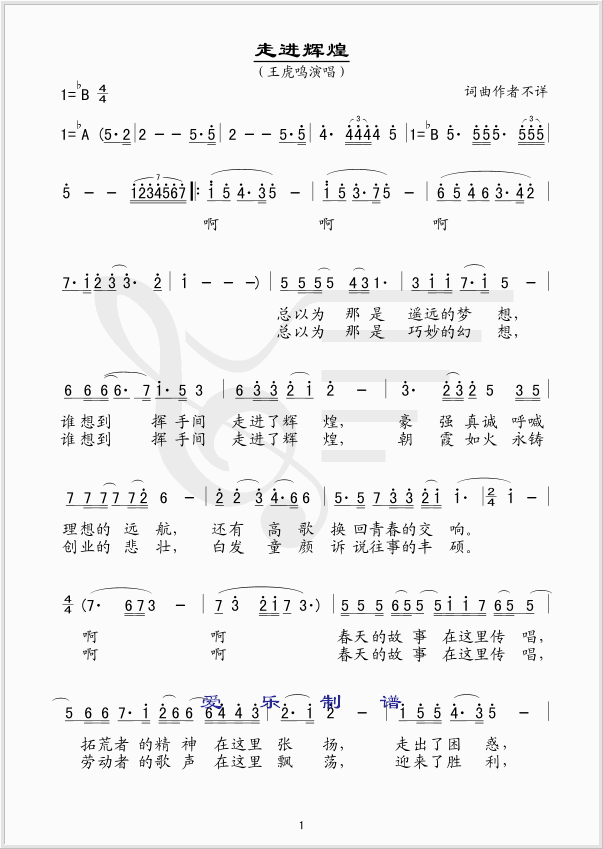 走进辉煌
（王虎鸣演唱）
1=♭B 4/4 词曲作者不详
1=♭A (5·2 | 2 - - 5·5 | 2 - - 5·5 | 4· 4444 5 | 1=♭B 5· 555· 555 |
5 - - 1234567 |: 1 5 4·35 - | 1 5 3·75 - | 6 5 4 6 3·42 |
啊 啊 啊
7·1233· 2 | 1 - - -) | 5 5 5 5 4 3 1· | 3 1 1 7·1 5 - |
总以为 那 是 遥远的梦 想，
总以为 那 是 巧妙的幻 想，
6 6 6 6· 7 1· 5 3 | 6 3 3 2 1 2 - | 3· 2 3 2 5 3 5 |
谁 想到 挥 手间 走进了辉 煌， 豪 强 真诚 呼喊
谁 想到 挥 手间 走进了辉 煌， 朝 霞 如火 永铸
7 7 7 7 7 2 6 - | 2 2 3 4·6 6 | 5· 5 7 3 3 2 1 1· | 2/4 1 - |
理想的 远 航， 还有 高 歌 换 回青春的交 响。
创业的 悲 壮， 白发 童 颜 诉 说往事的丰 硕。
4/4 (7· 6 7 3 - | 7 3 2 1 7 3·) | 5 5 5 6 5 5 5 1 1 7 6 5 5 |
啊 啊 春天的故 事 在这里传 唱，
啊 啊 春天的故 事 在这里传 唱，
爱 乐 制 谱
5 6 6 7· 1 2 6 6 6 4 4 3 | 2· 1 2 - | 1 5 5 4· 3 5 - |
拓荒者 的精 神 在这里 张 扬， 走出了困 惑，
劳动者 的歌 声 在这里 飘 荡， 迎来了胜 利，
1